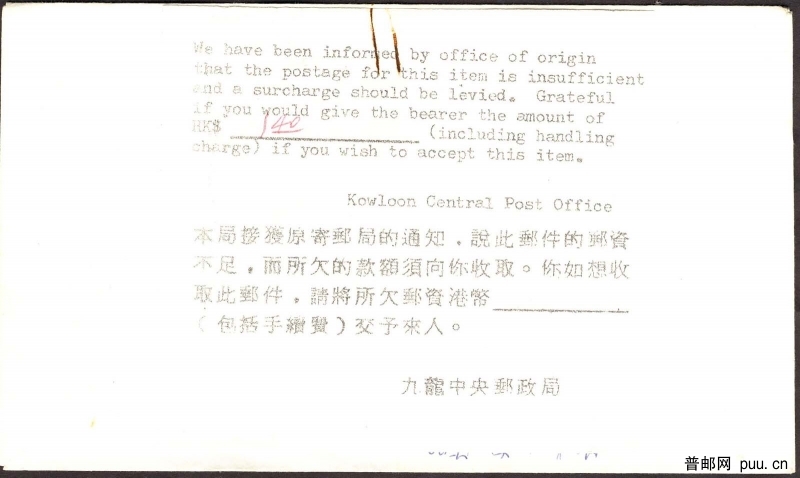 We have been informed by office of origin
that the postage for this item is insufficient
and a surcharge should be levied. Grateful
if you would give the bearer the amount of
HK$ 140 (including handling
charge) if you wish to accept this item.
Kowloon Central Post Office
本局接獲原寄郵局的通知，說此郵件的郵資
不足，而所欠的款額須向你收取。你如想收
取此郵件，請將所欠郵資港幣
（包括手續費）交予來人。
九龍中央郵政局
普邮网 puu.cn